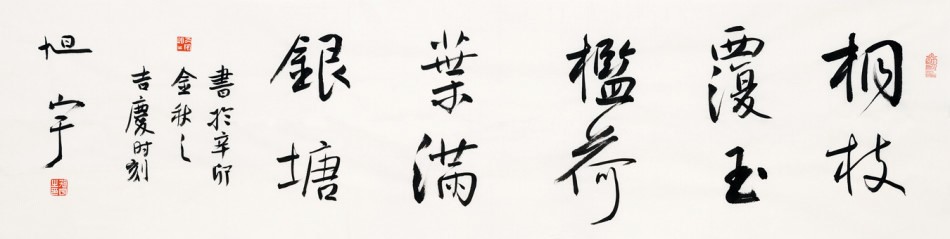 桐枝
覆玉
檻荷
葉滿
銀塘
書於辛卯
金秋之
吉慶时刻
旭宇